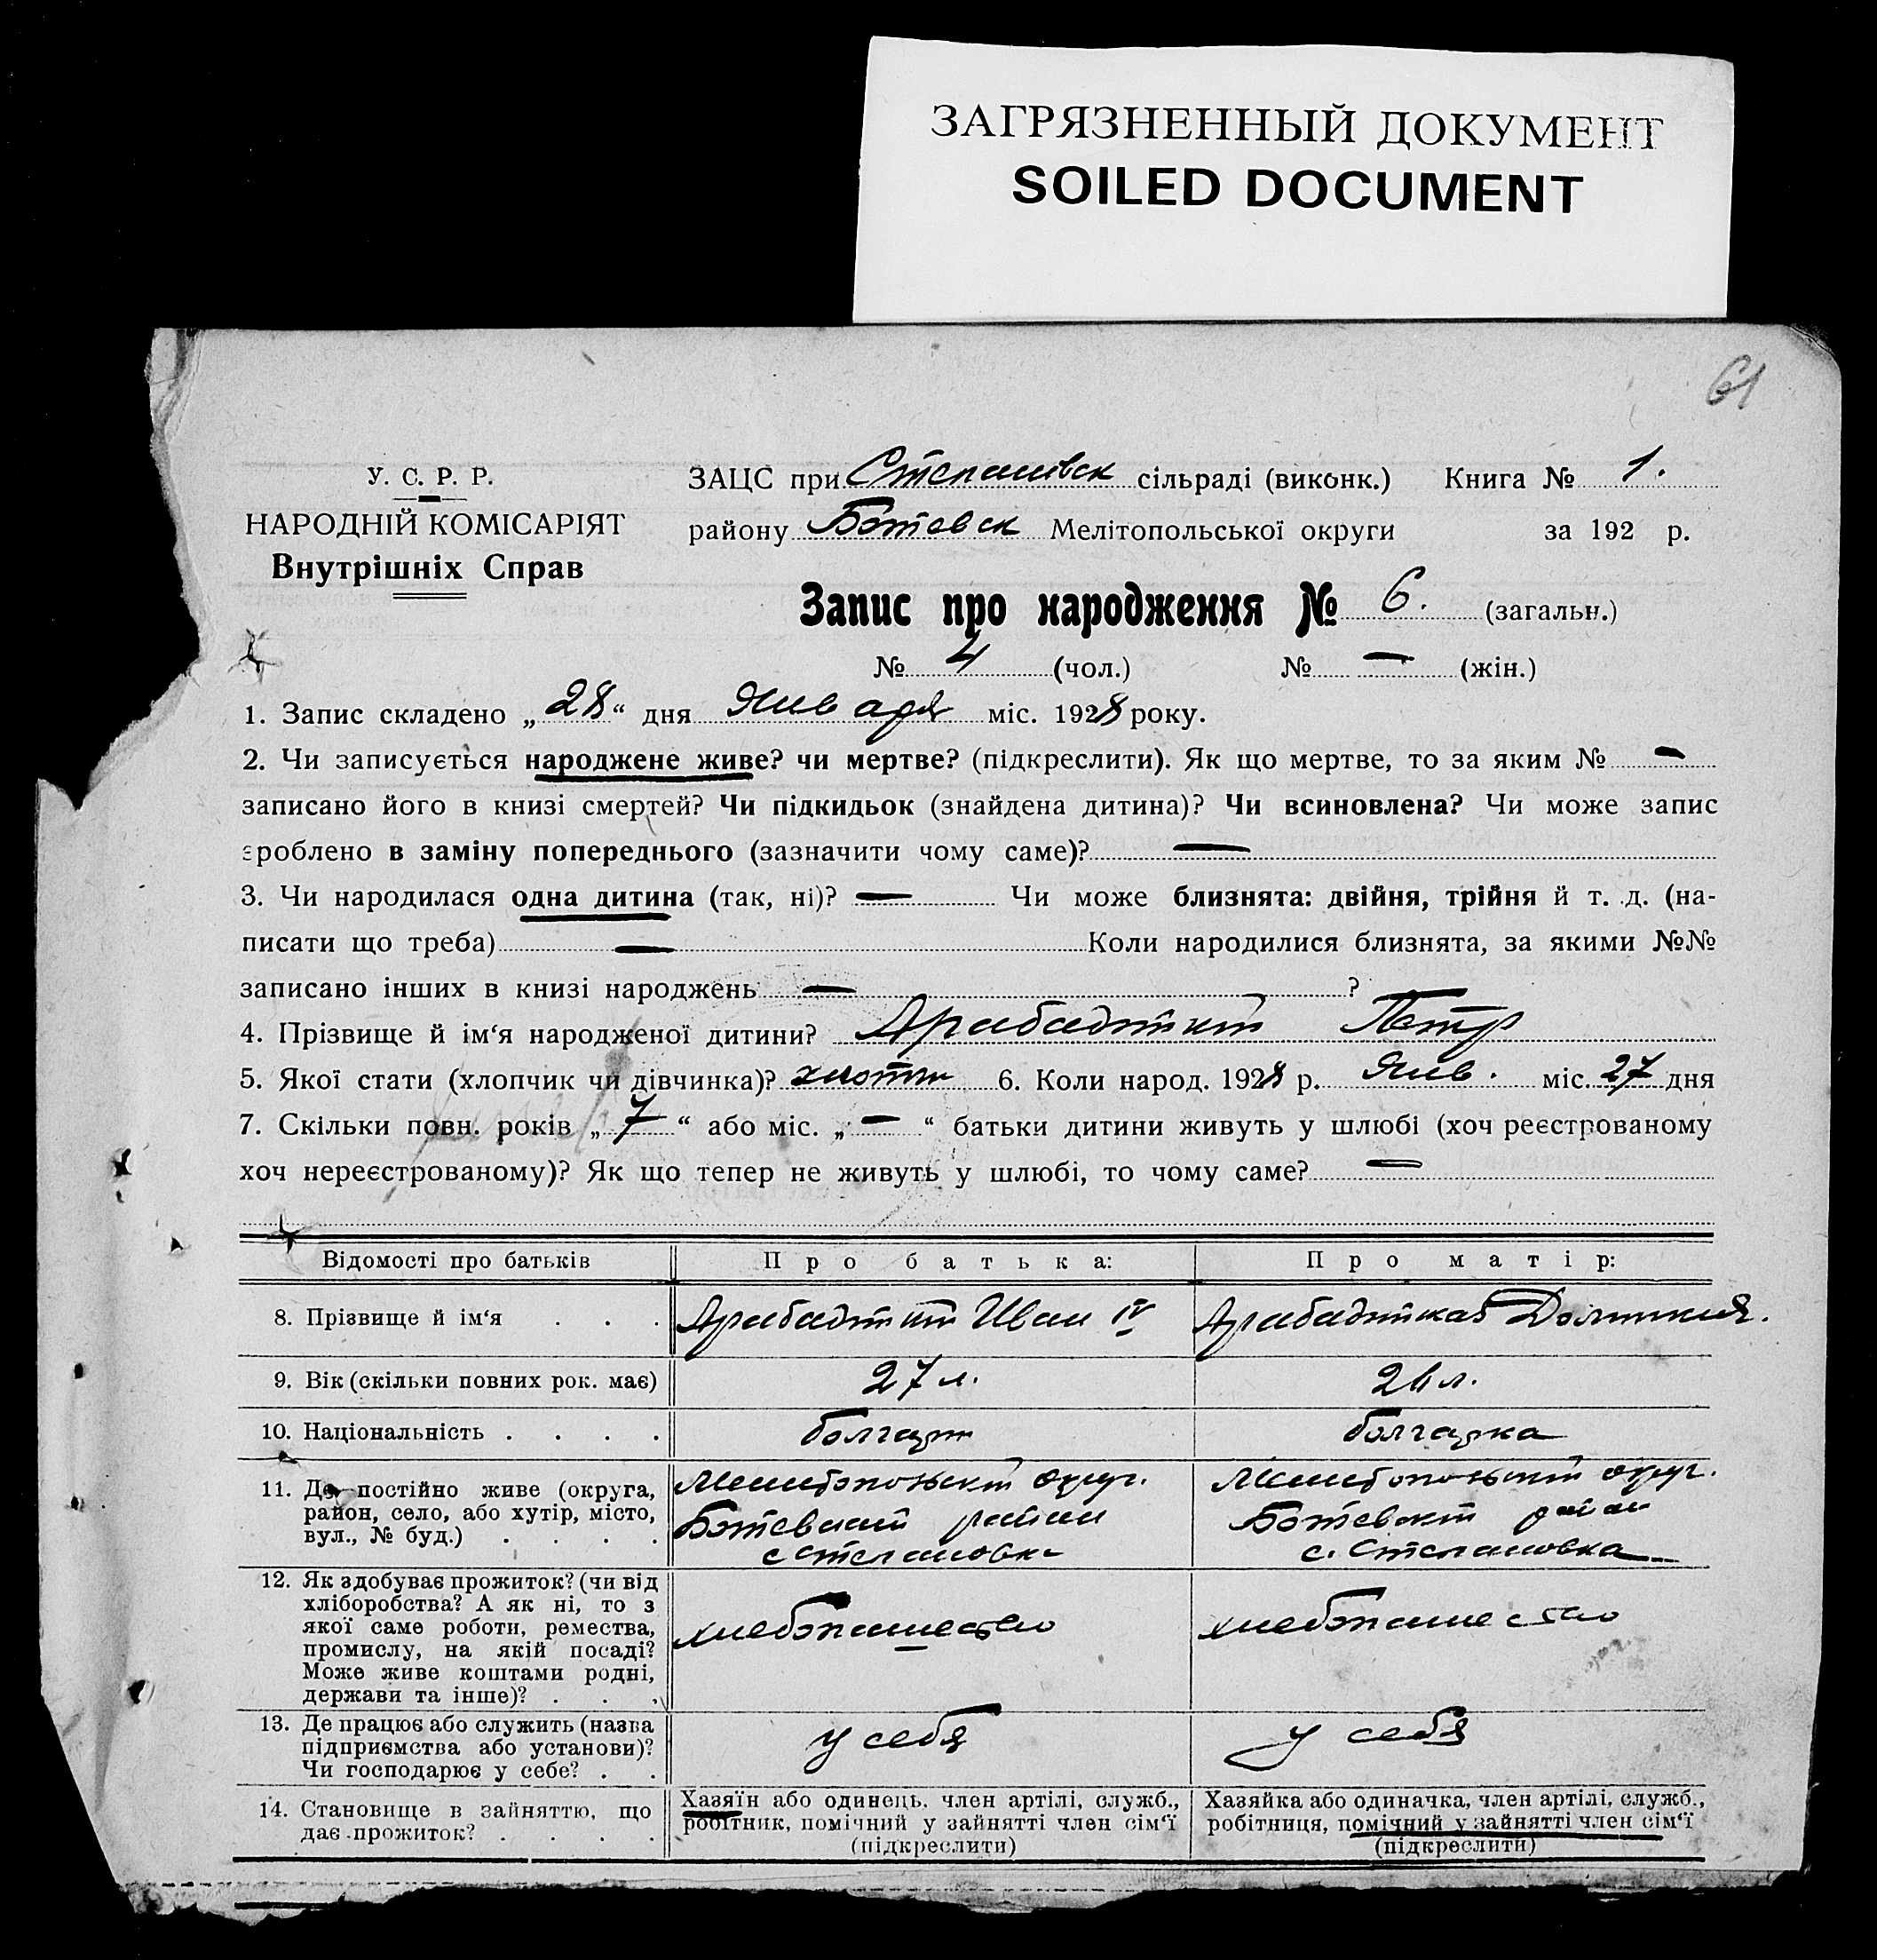 ЗАГРЯЗНЕННЫЙ ДОКУМЕНТ
SOILED DOCUMENT
61
У. С. Р. Р.
НАРОДНІЙ КОМІСАРІЯТ
Внутрішніх Справ
ЗАЦС при Степанівск сільраді (виконк.) Книга № 1.
району Ботевск Мелітопольської округи за 192 р.
Запис про народження № 6. (загальн.)
№ 4 (чол.) № — (жін.)
1. Запис складено „28“ дня Января міс. 1928 року.
2. Чи записується народжене живе? чи мертве? (підкреслити). Як що мертве, то за яким № —
записано його в книзі смертей? Чи підкидьок (знайдена дитина)? Чи всиновлена? Чи може запис
зроблено в заміну попереднього (зазначити чому саме)? —
3. Чи народилася одна дитина (так, ні)? — Чи може близнята: двійня, трійня й т. д. (на-
писати що треба) — Коли народилися близнята, за якими №№
записано інших в книзі народжень — ?
4. Прізвище й ім‘я народженої дитини? Арабаджи Петр
5. Якої стати (хлопчик чи дівчинка)? 6. Коли народ. 1928 р. Янв. міс. 27 дня
7. Скільки повн. років „7“ або міс. „—“ батьки дитини живуть у шлюбі (хоч реєстрованому
хоч нереєстрованому)? Як що тепер не живуть у шлюбі, то чому саме? —
Відомості про батьків Про батька: Про матір:
8. Прізвище й ім‘я . . . Арабаджи Иван IV
9. Вік (скільки повних рок. має) 27 л. 26 л.
10. Національність . . . . болгарин болгарка
11. Де постійно живе (округа,
район, село, або хутір, місто,
вул., № буд.) . . . .
Мелитопольский округ.
Ботевский район
с Степановка
Мелитопольский округ.
Ботевский район
с. Степановка
12. Як здобуває прожиток? (чи від
хліборобства? А як ні, то з
якої саме роботи, ремества,
промислу, на якій посаді?
Може живе коштами родні,
держави та інше)? . . .
хлебопашество
хлебопашество
13. Де працює або служить (назва
підприємства або установи)?
Чи господарює у себе? . .
у себя
у себя
14. Становище в зайняттю, що
дає прожиток? . . . .
Хазяїн або одинець. член артілі, служб.,
робітник, помічний у зайнятті член сім‘ї
(підкреслити)
Хазяйка або одиначка, член артілі, служб.,
робітниця, помічний у зайнятті член сім‘ї
(підкреслити)